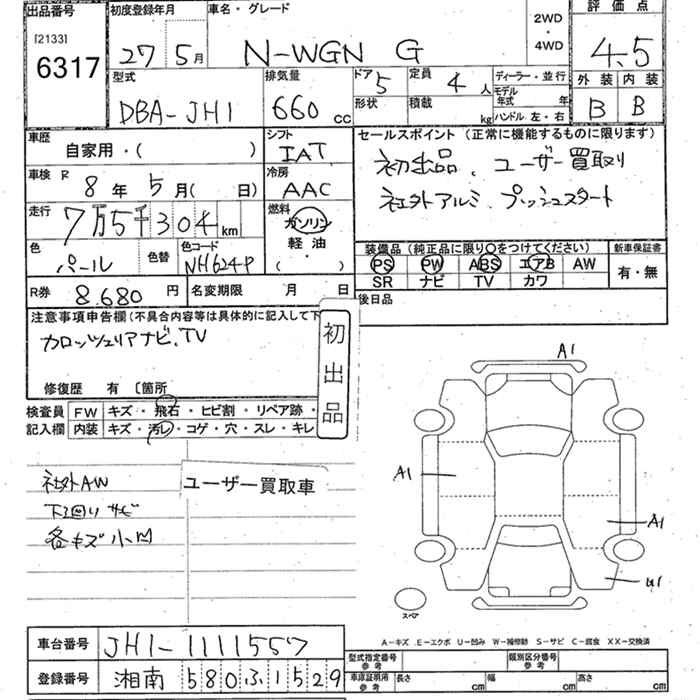 出品番号 初度登録年月 車名・グレード 評価点
[2133] 2WD
6317 27 5月 N-WGN G ・ 4WD 4.5
型式 排気量 ドア 5 定員 4人 ディーラー・並行 外装 内装
DBA-JH1 660cc 形状 積載 kg モデル年式 年 B B
ハンドル 左・右
車歴 シフト セールスポイント (正常に機能するものに限ります)
自家用・( ) IAT 初出品、ユーザー買取り
車検 R 8年 5月( 日) 冷房 AAC 社外アルミ、プッシュスタート
走行 7万5千304km 燃料 ガソリン
軽油
( )
色 パール 色替 色コード NH624P 装備品 (純正品に限り○をつけてください) 新車保証書
PS PW ABS エアB AW 有・無
SR ナビ TV カワ
R券 8.680円 名変期限 月 日 後日品
注意事項申告欄(不具合内容等は具体的に記入して下
カロッツェリアナビ、TV
初出品
修復歴 有 〔箇所
検査員 FW キズ・飛石・ヒビ割・リペア跡・
記入欄 内装 キズ・汚レ・コゲ・穴・スレ・キレ
A1
社外AW ユーザー買取車
A1
下廻りサビ
A1
各キズ小凹
U1
スペア
A-キズ .E-エクボ U-凹み W-補修動 S-サビ C-腐食 XX-交換済
車台番号 JH1-1111557
型式指定番号 参考 類別区分番号 参考
登録番号 湘南 580 ふ 1529
車庫証明用 参考 長さ cm 幅 cm 高さ cm